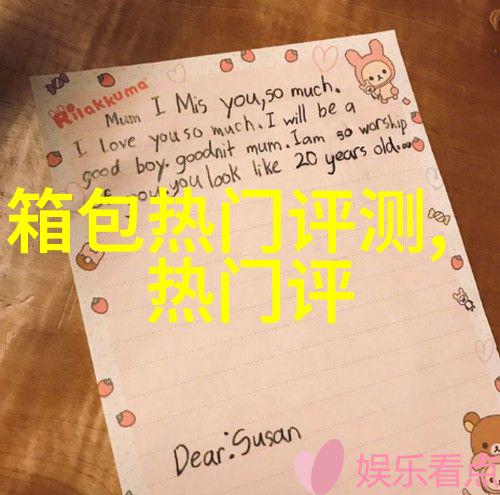 Rilakkuma
Mum I Mis you, so much.
I love you so much. I will be a
good boy. goodnit mum. Iam so worship
you, you look like 20 years old.
箱包热门评测,
热门评
Dear: Susan
娱乐看点